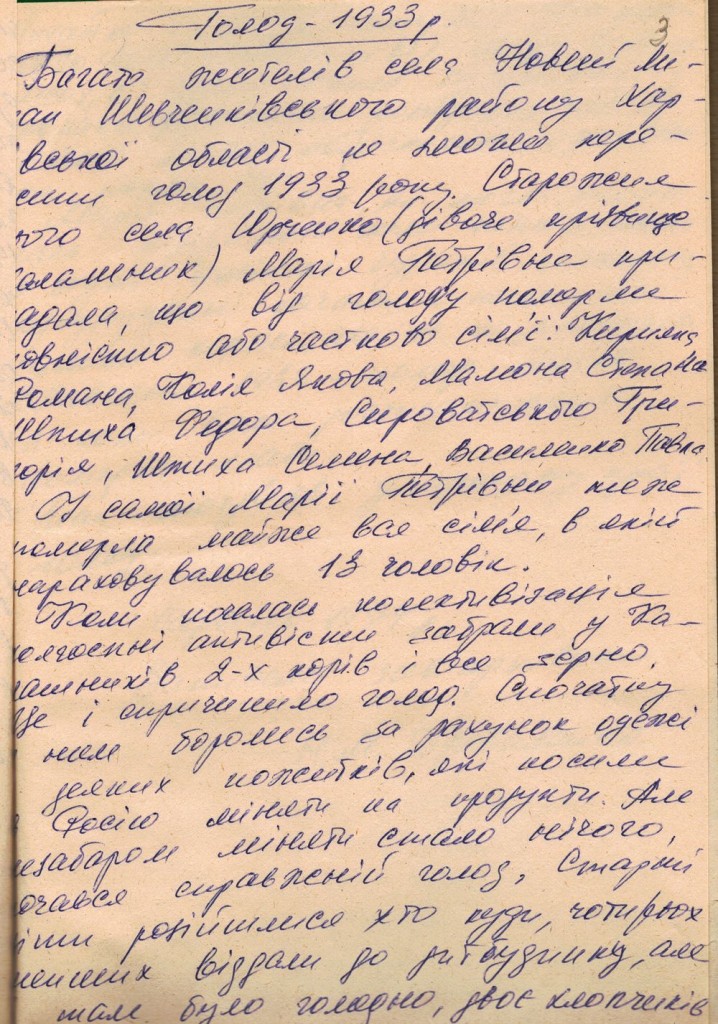 3
Голод - 1933 р.
Багато жителів села Новий Ли-
ман Шевченківського району Хар-
вської області не змогли пере-
сити голод 1933 року. Старожил
ього села Юрченко (дівоче прізвище
алашник) Марія Петрівна при-
адала, що від голоду померли
овністю або частково сім'ї: Кирияка
Романа, Колія Якова, Мамона Степана
Штиха Федора, Сироватського Гри-
горія, Штиха Семена, Василенко Павла
У самої Марії Петрівни теж
померла майже вся сім'я, в якій
нараховувалось 13 чоловік.
Коли почалась колективізація
колгоспні активісти забрали у Ка-
лашників 2-х корів і все зерно.
Це і спричинило голод. Спочатку
ним боролись за рахунок одежі
деяких пожитків, які носили
Росію міняти на продукти. Але
незабаром міняти стало нічого,
очався справжній голод. Старші
іти розійшлися хто куди, чотирьох
менших віддали до дитбудинку, але
там було голодно, двоє хлопчиків